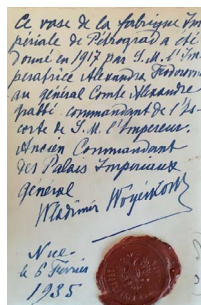 Ce vase de la fabrique Im
périale de Pétrograd a été
donné en 1917 par S. M. l'Im
peratrice Alexandra Feodorovna
au général Comte Alexandre
Grabbé commandant de l'Es-
corte de S. M. l'Empereur.
Ancien Commandant
des Palais Imperiaux
General
Wladimir Woyeikow
Nice
le 6 Fevrier
1935